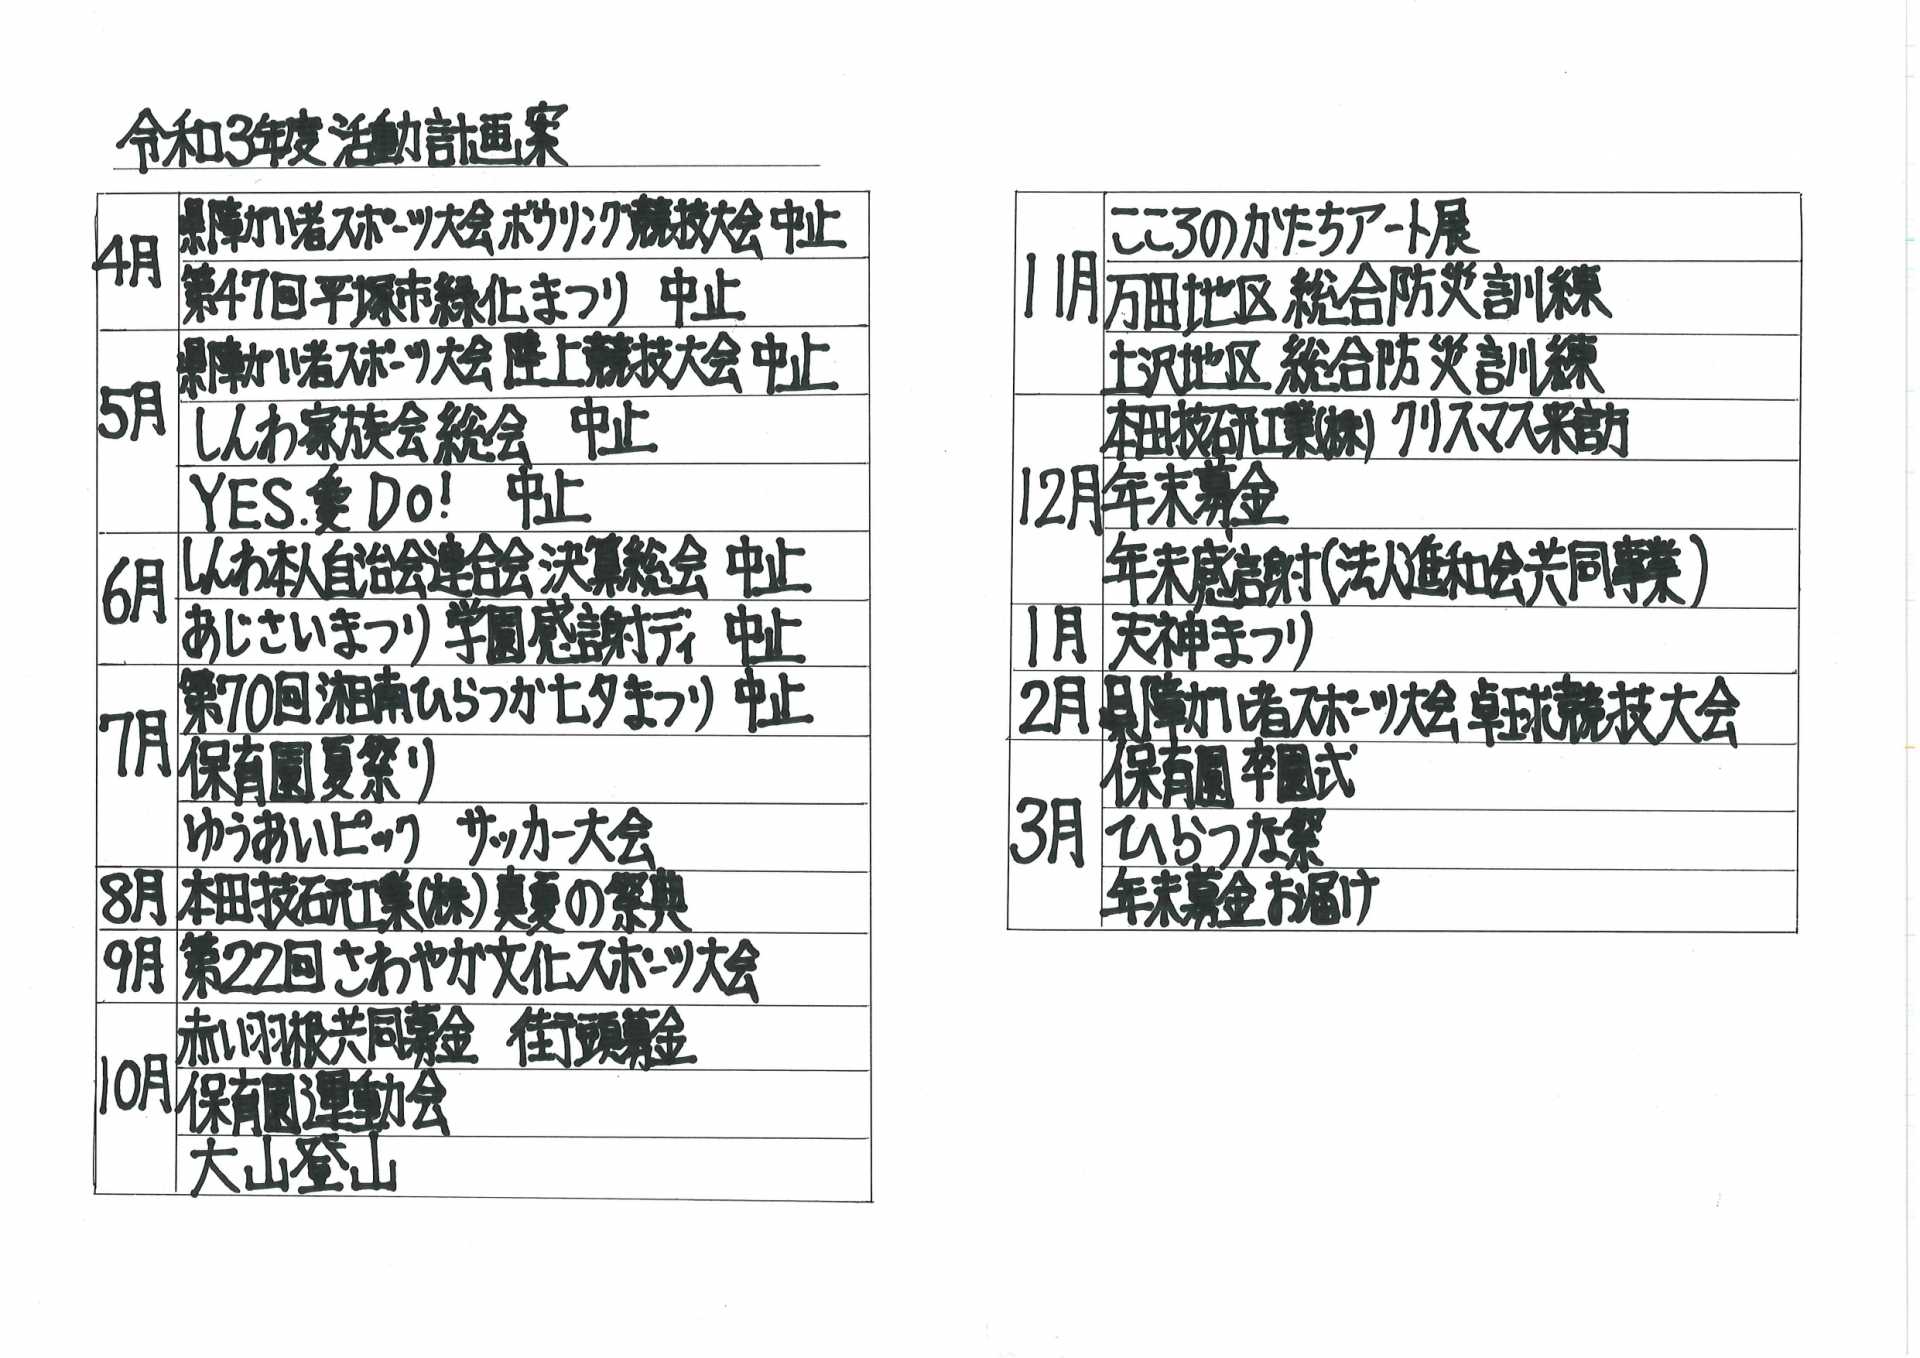 令和3年度活動計画案
4月
県障がい者スポーツ大会 ボウリング競技大会 中止
第47回平塚市緑化まつり 中止
5月
県障がい者スポーツ大会 陸上競技大会 中止
しんわ家族会総会 中止
YES.愛Do! 中止
6月
しんわ本人自治会連合会 決算総会 中止
あじさいまつり 学園感謝ディ 中止
7月
第70回湘南ひらつか七夕まつり 中止
保育園夏祭り
ゆうあいピック サッカー大会
8月
本田技研工業(株) 真夏の祭典
9月
第22回 さわやか文化スポーツ大会
10月
赤い羽根共同募金 街頭募金
保育園運動会
大山登山
11月
こころのかたちアート展
万田地区 総合防災訓練
土沢地区 総合防災訓練
12月
本田技研工業(株) クリスマス来訪
年末募金
年末感謝(法人進和会共同事業)
1月
天神まつり
2月
県障がい者スポーツ大会 卓球競技大会
3月
保育園 卒園式
ひらつな祭
年末募金お届け